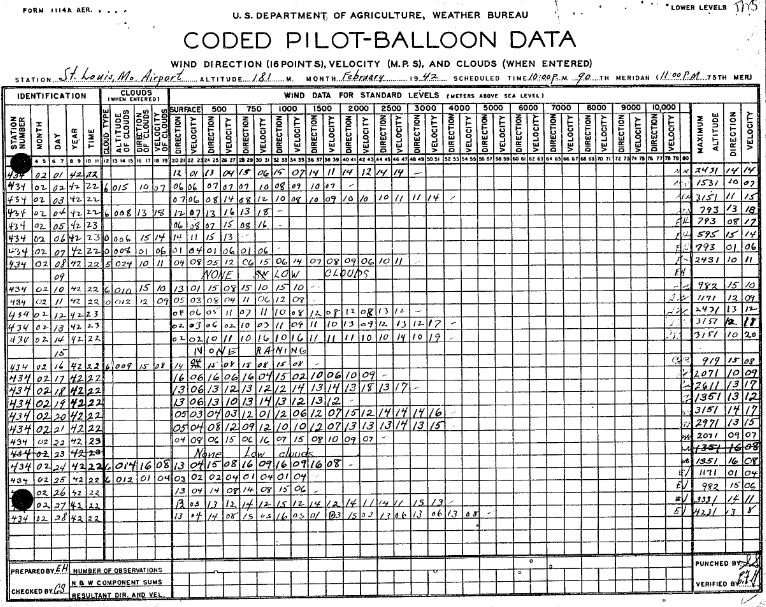 FORM 1114A AER.
LOWER LEVELS
U. S. DEPARTMENT OF AGRICULTURE, WEATHER BUREAU
CODED PILOT-BALLOON DATA
WIND DIRECTION (16 POINTS), VELOCITY (M.P.S), AND CLOUDS (WHEN ENTERED)
STATION St. Louis, Mo. Airport ALTITUDE 181 M. MONTH February 1942 SCHEDULED TIME 10:00 P.M 90 TH MERIDAN (11:00 P.M 75TH MER)
IDENTIFICATION CLOUDS (WHEN ENTERED) WIND DATA FOR STANDARD LEVELS (METERS ABOVE SEA LEVEL)
SURFACE 500 750 1000 1500 2000 2500 3000 4000 5000 6000 7000 8000 9000 10,000
STATION NUMBER MONTH DAY YEAR TIME CLOUD TYPE ALTITUDE OF CLOUDS DIRECTION OF CLOUDS VELOCITY OF CLOUDS DIRECTION VELOCITY MAXIMUM ALTITUDE DIRECTION VELOCITY
434 02 01 42 22 12 01 13 04 15 06 15 07 14 11 14 12 14 14 2431 14 14
434 02 02 42 22 6 015 10 07 06 06 07 07 07 10 08 09 10 07 1531 10 07
434 02 03 42 22 07 06 08 14 08 12 10 08 10 09 10 10 10 11 11 14 3151 11 15
434 02 04 42 22 6 008 13 18 12 07 13 16 13 18 793 13 18
434 02 05 42 23 06 08 07 15 08 16 793 08 17
434 02 06 42 23 0 006 15 14 14 11 15 13 595 15 14
434 02 07 42 22 0 008 01 06 01 04 01 06 01 06 793 01 06
434 02 08 42 22 5 024 10 11 04 08 05 12 06 15 06 14 07 08 09 06 10 11 2431 10 11
09 NONE LOW CLOUDS
434 02 10 42 22 6 010 15 10 13 01 15 08 15 10 15 10 982 15 10
434 02 11 42 22 0 012 12 09 05 03 08 04 11 06 12 08 1171 12 09
434 02 12 42 23 05 11 07 11 10 08 12 08 12 08 13 12 2431 13 12
434 02 13 42 23 02 03 06 02 10 03 11 09 11 10 13 09 12 13 12 17 3151 12 18
434 02 14 42 22 02 02 10 11 10 16 10 16 11 11 11 10 10 14 10 19 3151 10 20
15 NONE RAINING
434 02 16 42 22 6 009 15 08 14 15 08 15 08 15 08 919 15 08
434 02 17 42 22 16 06 16 06 16 04 15 02 10 06 10 09 2071 10 09
434 02 18 42 22 13 06 13 12 13 12 12 14 13 14 13 18 13 17 2611 13 17
434 02 19 42 22 13 06 13 10 13 14 13 12 13 12 1351 13 12
434 02 20 42 22 05 03 04 03 12 01 12 06 12 07 15 12 14 14 14 16 3151 14 17
434 02 21 42 22 05 04 08 12 09 12 10 10 12 07 13 13 13 14 13 15 2971 13 15
434 02 22 42 23 04 08 06 15 06 16 07 15 08 10 09 07 2071 09 07
434 02 23 42 23 None Low clouds 1351 16 08
434 02 24 42 22 6 014 16 08 13 04 15 08 16 09 16 09 16 08 1351 16 08
434 02 25 42 22 6 012 01 04 03 02 02 04 01 04 01 04 1171 01 04
02 26 42 22 13 04 14 08 14 08 15 06 982 15 06
02 27 42 22 13 12 14 12 15 12 14 12 14 11 14 11 13 13 3331 14 11
434 02 28 42 22 13 04 14 08 15 03 16 03 01 03 15 03 13 06 13 06 13 08 4231 13 8
PREPARED BY EH NUMBER OF OBSERVATIONS PUNCHED BY
N & W COMPONENT SUMS
CHECKED BY RESULTANT DIR. AND VEL. VERIFIED BY